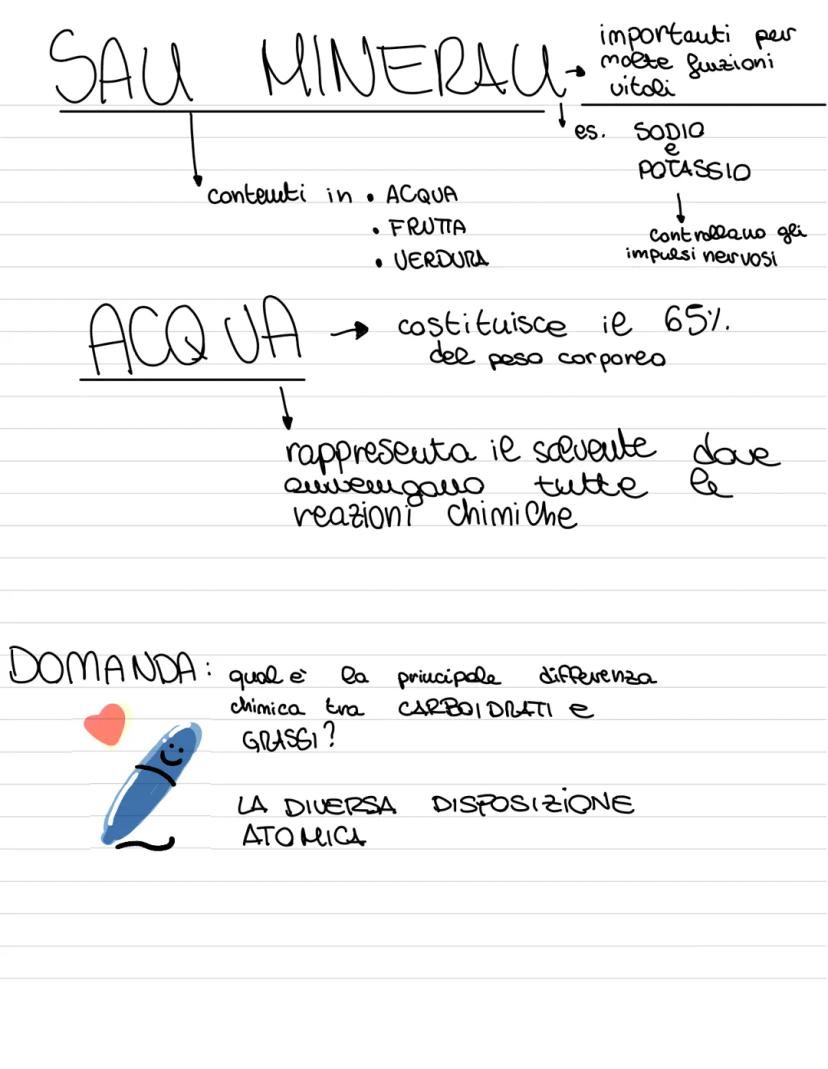 SALI MINERALI
importanti per
molte funzioni
vitali
es. SODIO
e
POTASSIO
controllano gli
impulsi nervosi
contenuti in • ACQUA
• FRUTTA
• VERDURA
ACQUA → costituisce il 65%.
del peso corporeo
rappresenta il solvente dove
avvengano tutte le
reazioni chimiche
DOMANDA: qual è la principale differenza
chimica tra CARBOIDRATI e
GRASSI?
LA DIVERSA DISPOSIZIONE
ATOMICA